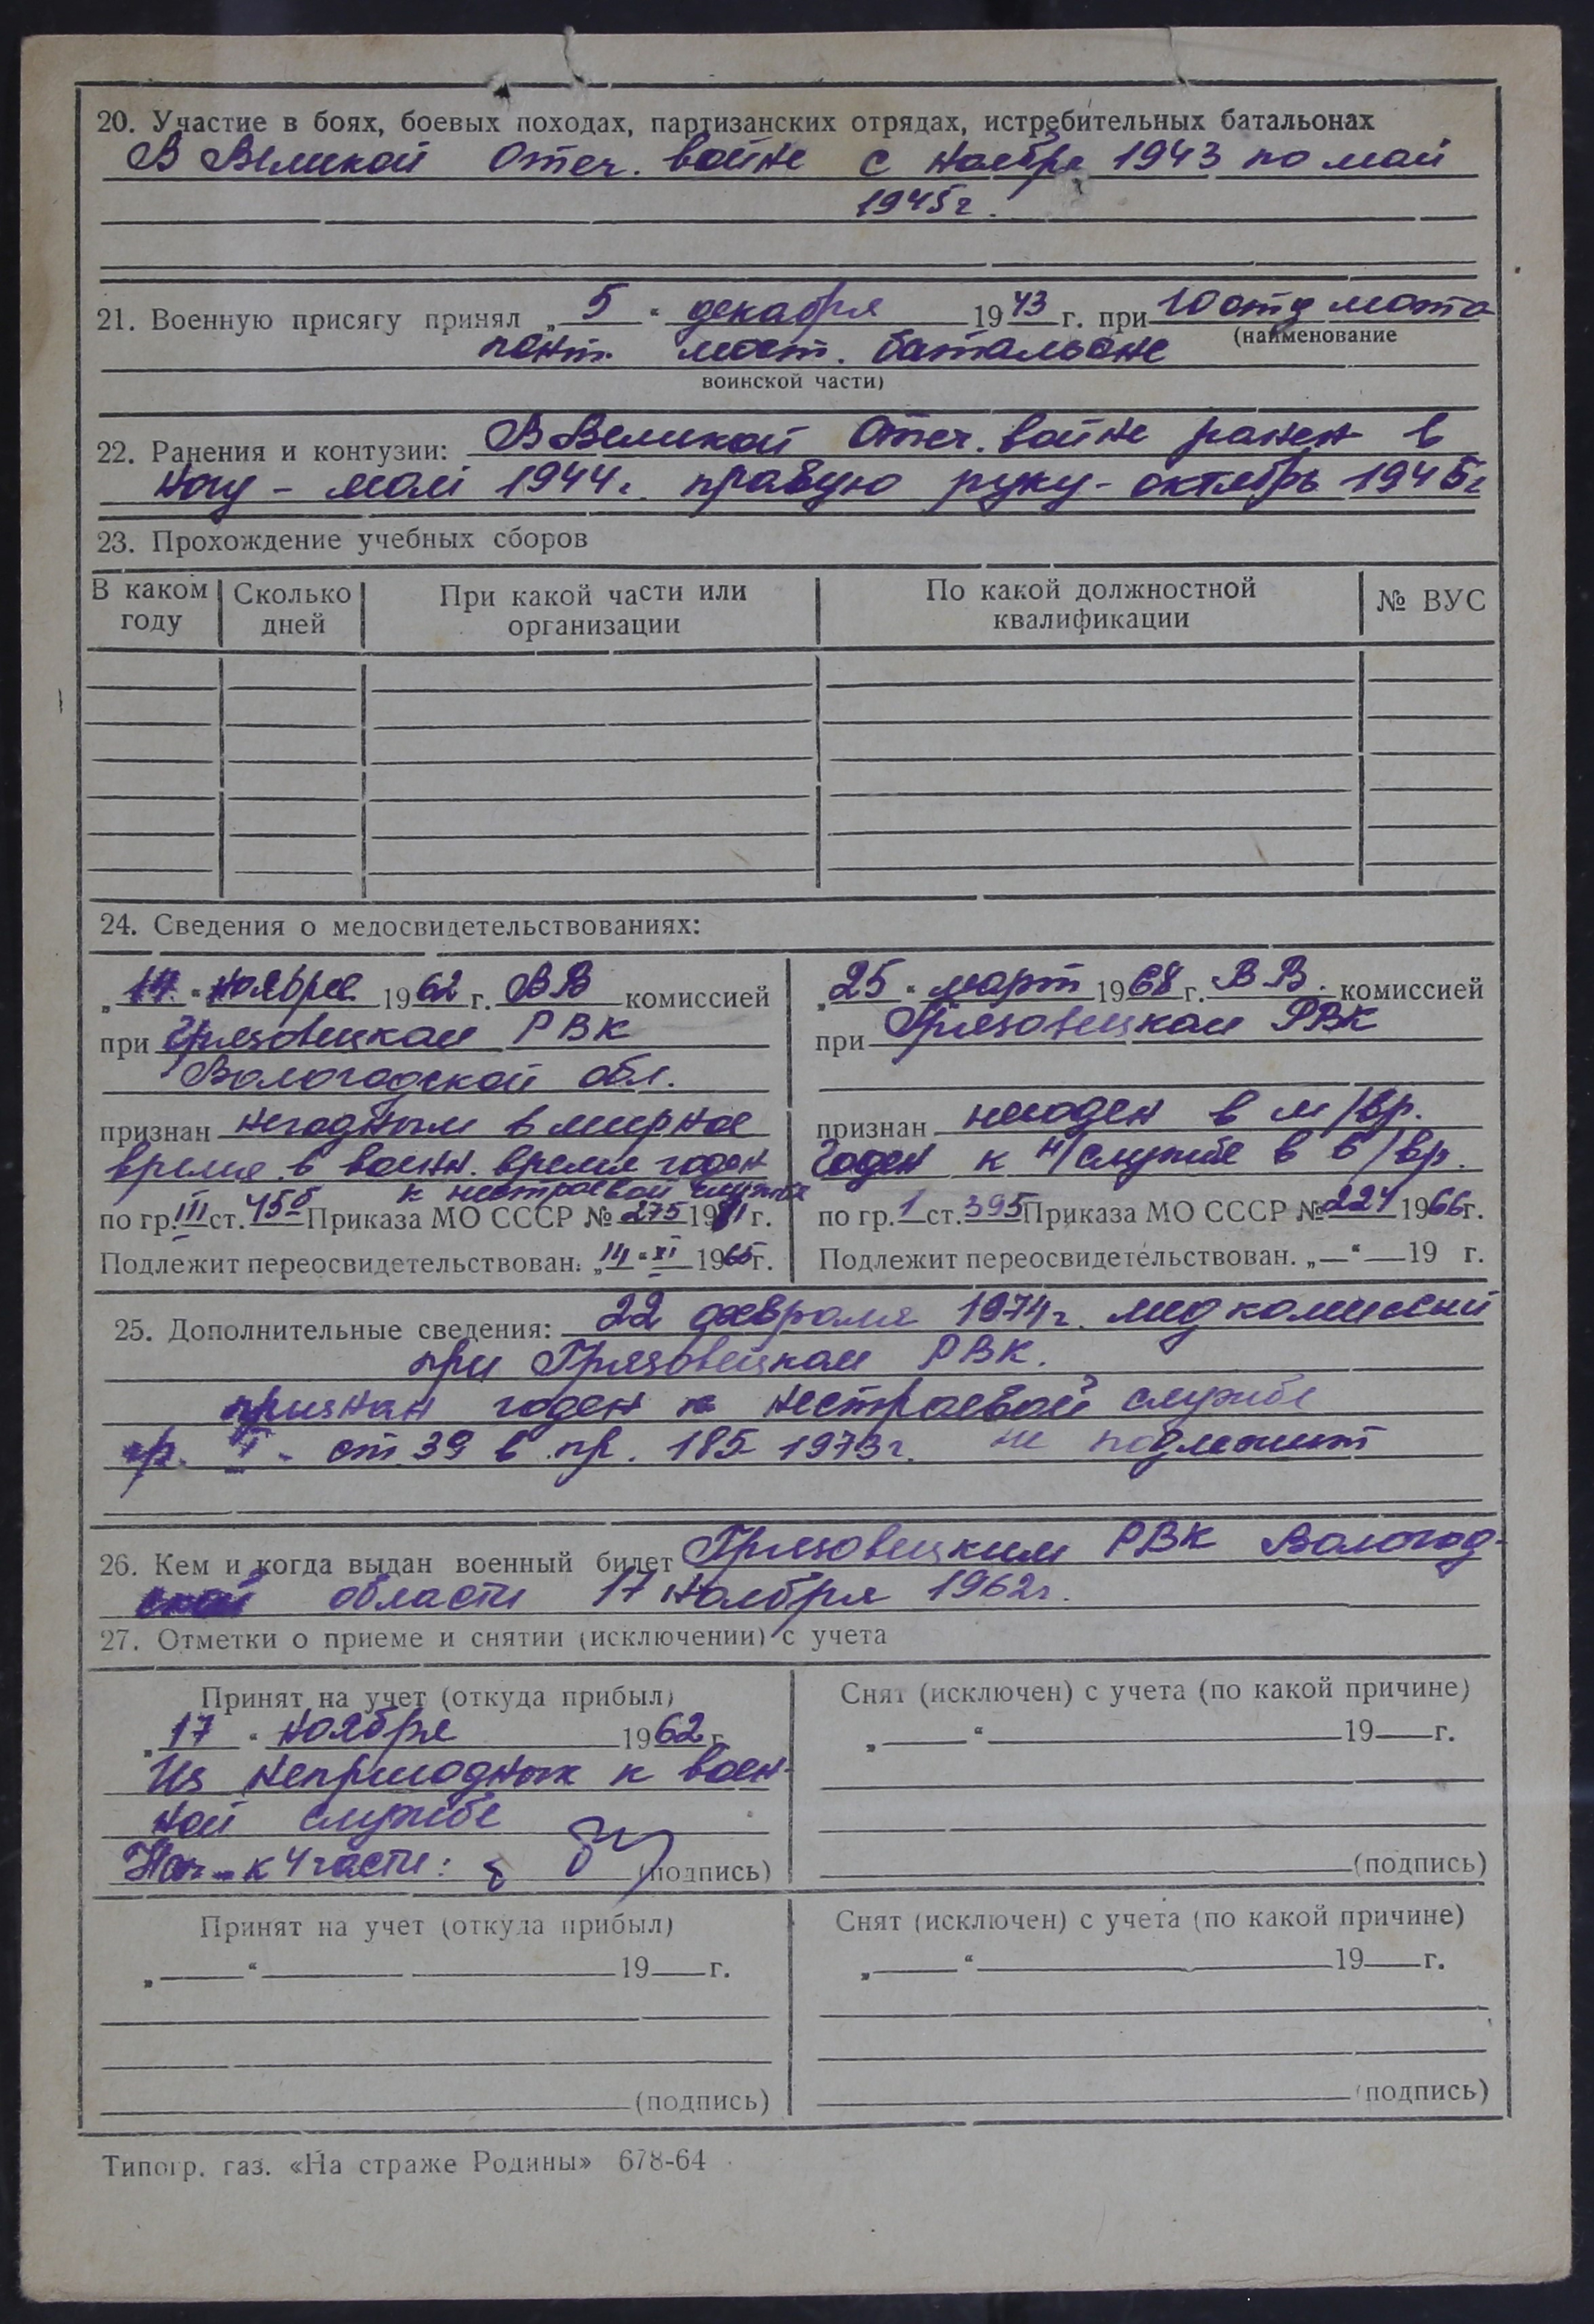 20. Участие в боях, боевых походах, партизанских отрядах, истребительных батальонах
В Великой Отеч. войне с ноября 1943 по май
1945 г.
21. Военную присягу принял „5“ декабря 1943 г. при 10 отд мото
(наименование
понт. мост. батальоне
воинской части)
22. Ранения и контузии: В Великой Отеч. войне ранен в
ногу - май 1944 г. правую руку - октябрь 1945 г
23. Прохождение учебных сборов
В каком году Сколько дней При какой части или организации По какой должностной квалификации № ВУС
24. Сведения о медосвидетельствованиях:
„14“ ноября 1962 г. ВВ комиссией
при Грязовецком РВК
Вологодской обл.
признан негодным в мирное
время в воен. время годен
к нестроевой службе
по гр. III ст. 45б Приказа МО СССР № 275 19 г.
Подлежит переосвидетельствован. „14“ XI 1965 г.
„25“ март 1968 г. ВВ. комиссией
при Грязовецком РВК
признан негоден в м/вр.
Годен к н/службе в в/вр.
по гр. 1 ст. 395 Приказа МО СССР № 224 1966 г.
Подлежит переосвидетельствован. „—“ — 19 г.
25. Дополнительные сведения: 22 февраля 1974 г. мед комиссий
при Грязовецком РВК.
признан годен к нестроевой службе
гр. I - ст 39 в пр. 185 1973 г. не подлежит
26. Кем и когда выдан военный билет Грязовецким РВК Вологод-
ской области 17 ноября 1962 г.
27. Отметки о приеме и снятии (исключении) с учета
Принят на учет (откуда прибыл)
„17“ ноября 1962 г.
Из непригодных к воен-
ной службе
Нач к 4 части: (подпись)
Снят (исключен) с учета (по какой причине)
„—“ — 19— г.
(подпись)
Принят на учет (откуда прибыл)
„—“ — 19— г.
(подпись)
Снят (исключен) с учета (по какой причине)
„—“ — 19— г.
(подпись)
Типогр. газ. «На страже Родины» 678-64